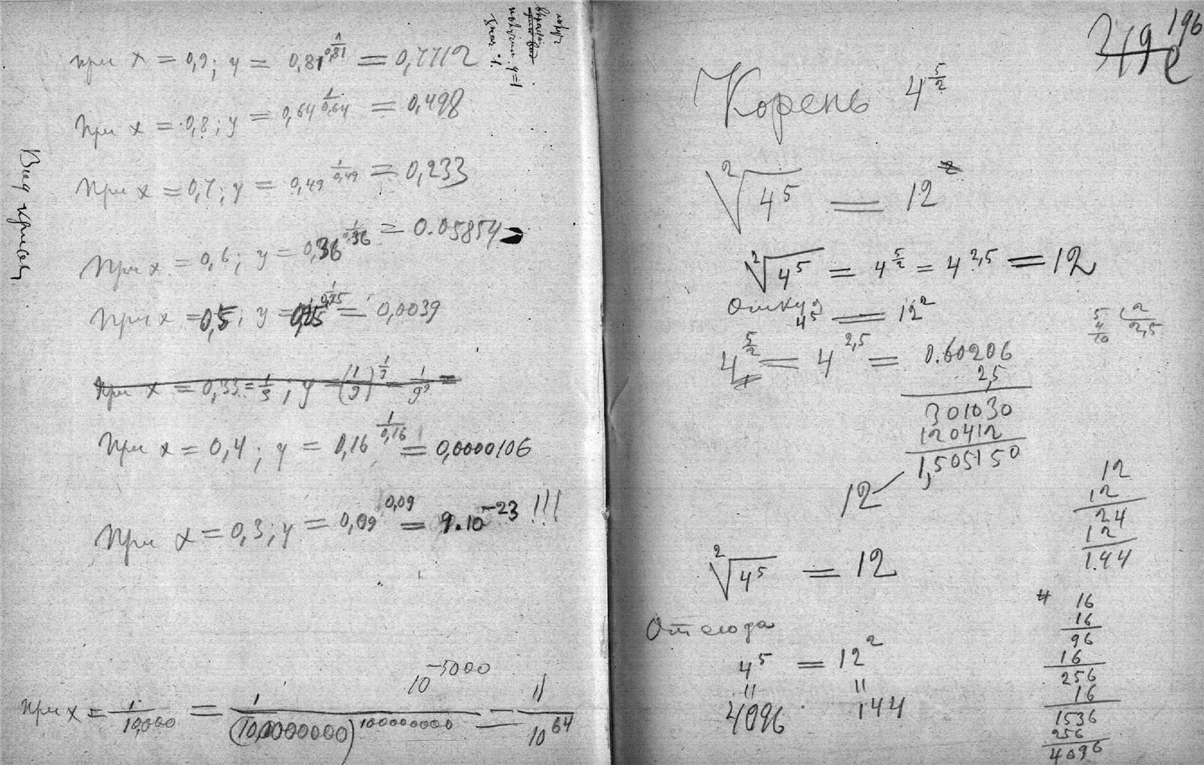 при x = 0,9; y = 0,81^{1/0,81} = 0,7712
при x = 0,8; y = 0,64^{1/0,64} = 0,498
при x = 0,7; y = 0,49^{1/0,49} = 0,233
при x = 0,6; y = 0,36^{1/0,36} = 0.05854
при x = 0,5; y = 0,25^{1/0,25} = 0,0039
при x = 0,33 = 1/3; y = (1/9)^{1/9} = 1/9^9 =
при x = 0,4; y = 0,16^{1/0,16} = 0,0000106
при x = 0,3; y = 0,09^{0,09} = 9.10^{-23} !!!
10^{-5000}
при x = 1/10,000 = 1/(100000000)^{100000000} = 1/10^{64}
Вид кривой
196
Корень 4^{5/2}
²√4^5 = 12
²√4^5 = 4^{5/2} = 4^{2,5} = 12
Откуда
4^5 = 12^2
4^{5/2} = 4^{2,5} = 0.60206
2,5
301030
120412
1,505150
12
²√4^5 = 12
Отсюда
4^5 = 12^2
" "
4096 144
5 2
4 2,5
10
12
12
24
12
1.44
16
16
96
16
256
16
1536
256
4096